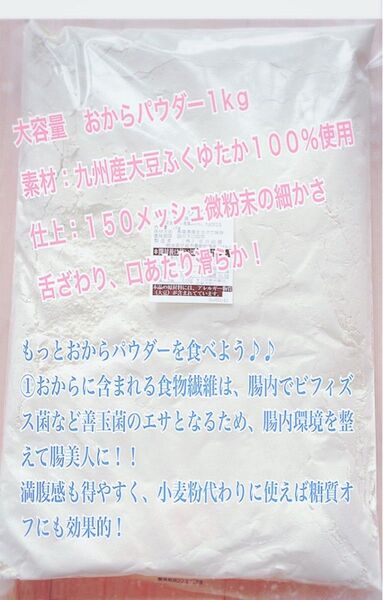 大容量　おからパウダー1kg
素材：九州産大豆ふくゆたか100％使用
仕上：150メッシュ微粉末の細かさ
舌ざわり、口あたり滑らか！
本品の原材料には、アレルギー物質
(大豆)が含まれています。
もっとおからパウダーを食べよう♪♪
①おからに含まれる食物繊維は、腸内でビフィズ
ス菌など善玉菌のエサとなるため、腸内環境を整
えて腸美人に！！
満腹感も得やすく、小麦粉代わりに使えば糖質オ
フにも効果的！